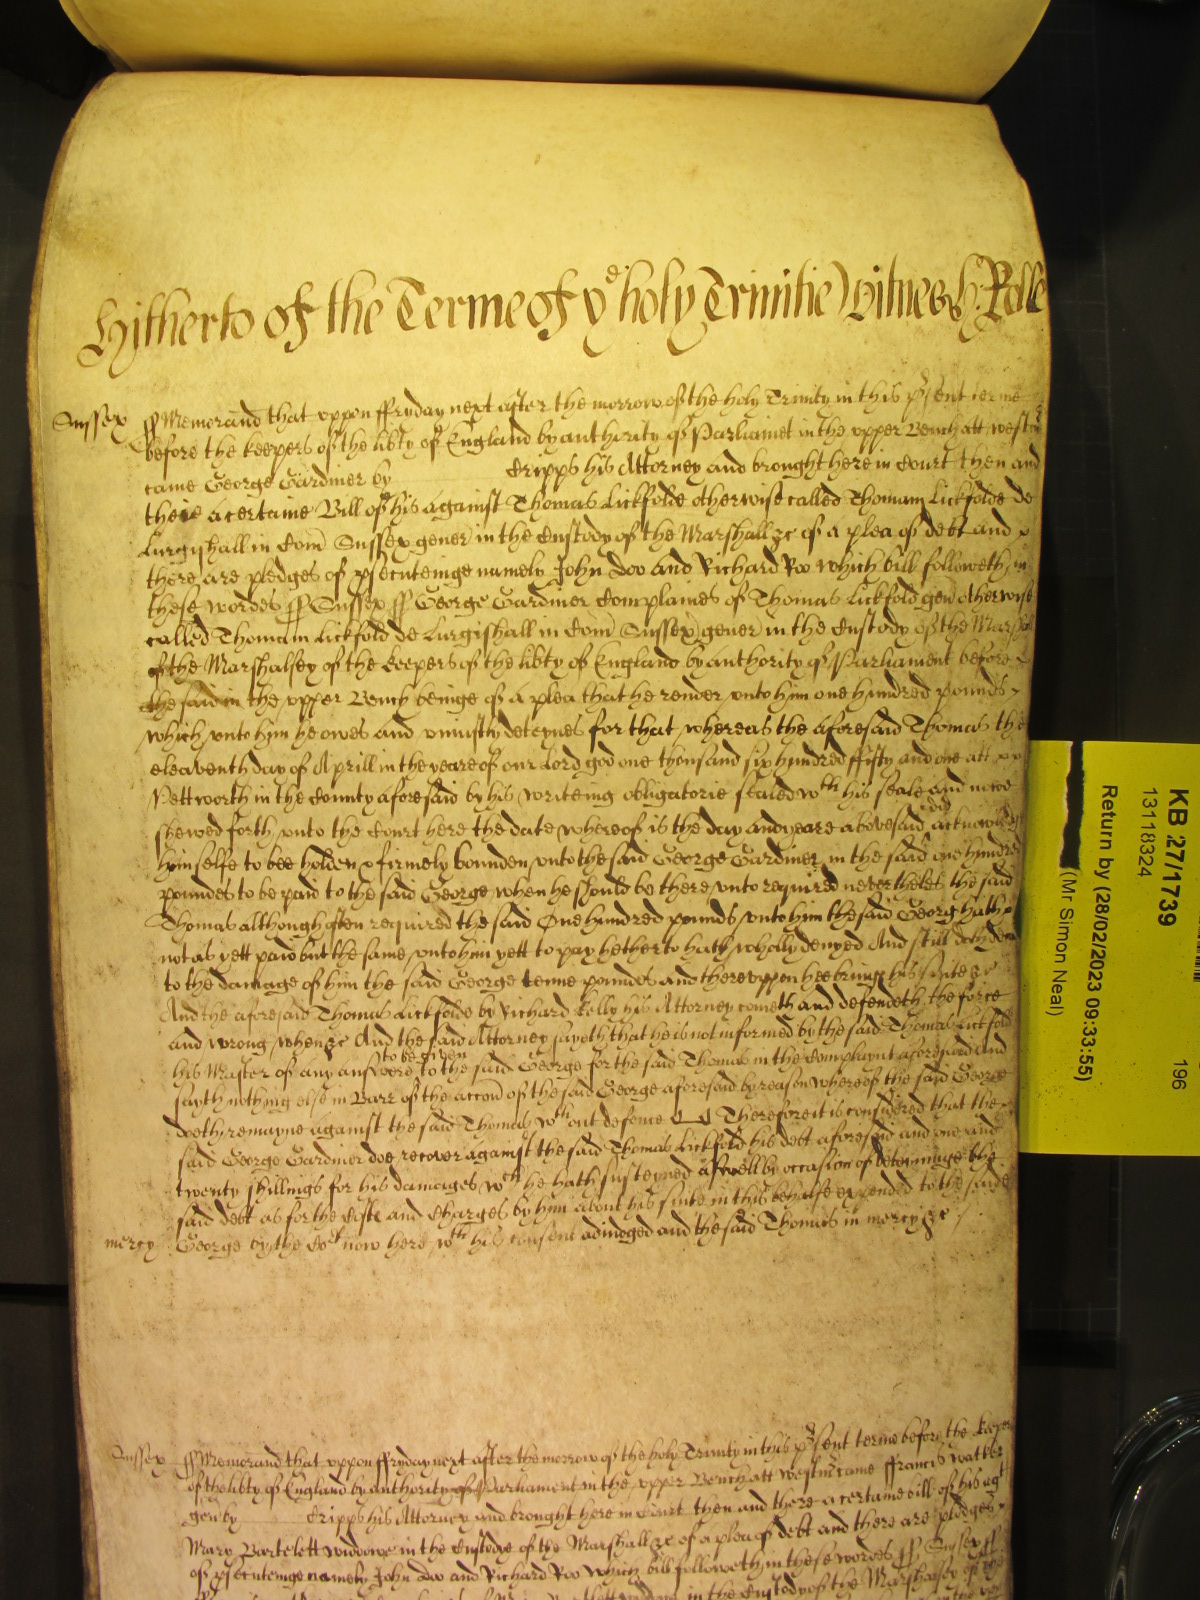 Hitherto of the Terme of ye holy Trinitie Witnes H: Rolle
Sussex ss Memorand that uppon ffryday next after the morrow of the holy Trinity in this psent terme
before the keepers of the libty of England by authority of Parliamet in the upper Bench att westm
came George Gardiner by Cripps his Attorney and brought here in Court then and
there a certaine Bill of his against Thomas Lickfolde otherwise called Thomam Lickfolde de
Lurgishall in Com Sussex gener in the Custody of the Marshall &c of a plea of debt and
there are pledges of psecuteinge namely John Doo and Richard Roo which bill followeth in
these wordes ss Sussex ss George Gardiner Complaines of Thomas Lickfold gen otherwise
called Thomam Lickfold de Lurgishall in Com Sussex gener in the Custody of the Marshall
of the Marshalsey of the keepers of the libty of England by authority of Parliament before
the said in the upper Bench beinge of a plea that he render unto him one hundred pounds
which unto him he owes and uniustly deteynes for that whereas the aforesaid Thomas the
eleaventh day of Aprill in the yeare of our Lord god one thousand six hundred ffifty and one att
Pettworth in the County aforesaid by his writeing obligatorie sealed wth his seale and now
shewed forth unto the Court here the date whereof is the day and yeare abovesaid did acknowledge
himselfe to bee holden & firmely bounden unto the said George Gardiner in the said one hundred
poundes to be paid to the said George when he should be there unto required neverthelesse the said
Thomas although often required the said One hundred pounds unto him the said George hath
not as yett paid but the same unto him yett to pay hetherto hath wholly denyed And still doth deny
to the damage of him the said George tenne poundes and thereuppon hee bringes his suite &c
And the aforesaid Thomas Lickfolde by Richard Kelly his Attorney cometh and defendeth the force
and wrong when &c And the said Attorney sayeth that he is not informed by the said Thomas Lickfold
his Master of any answere to be given to the said George for the said Thomas in the Complaynt aforesaid and
sayth nothing else in Barr of the accon of the said George aforesaid by reason whereof the said George
doeth remayne against the said Thomas wthout defence Therefore it is considered that the
said George Gardiner doe recover against the said Thomas Lickfold his debt aforesaid and one and
twenty shillings for his damages wch he hath susteyned aswell by occasion of deteininge the
said debt as for the Costs and Charges by him about his suite in this behalfe expended to the saide
mercy George by the Cort now here wth his consent adiudged and the said Thomas in mercy &c
Sussex ss Memorand that uppon ffryday next after the morrow of the holy Trinity in this psent terme before the keepers
of the libty of England by authority of Parliament in the upper Bench att Westmr came ffrancis
gen by Cripps his Attorney and brought here in Court then and there a certaine bill of his agt
Mary Bartelett widdowe in the Custody of the Marshall &c of a plea of debt and there are pledges
of psecuteinge namely John Doo and Richard Roo which bill followeth in these wordes ss Sussex ss
in the Custody of the Marshalsey of the
KB 27/1739
13118324
196
Return by (28/02/2023 09:33:55)
(Mr Simon Neal)